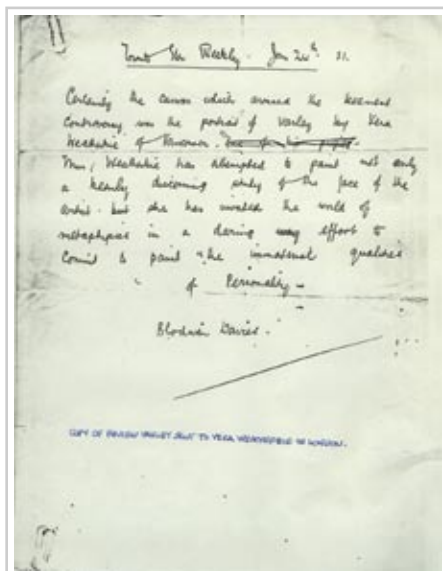 Toronto Star Weekly. Jan 24th. 31.
Certainly the canvas which aroused the keenest
controversy was the portrait of Varley by Vera
Weatherbie of Vancouver.
Miss Weatherbie has attempted to paint not only
a keenly discerning study of the face of the
artist. but she has invaded the world of
metaphysics in a daring effort to
commit to paint the immaterial qualities
of Personality -
Blodwen Davies.
COPY OF REVIEW VARLEY SENT TO VERA WEATHERBIE IN LONDON.